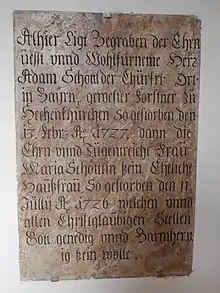 Alhier Ligt Begraben der Ehrn
vösst vnnd Wohlfürneme Herz
Adam Schönder Chürfrt: Drt:
in Bayrn, gewester Forstner zu
Hechenkhürchen So gestorben den
13. Febr: A: 1727. dann die
Ehrn vnnd Tügenreiche Frau
Maria Schöttin sein Eheliche
Haußfrau So gestorben den 11
Julij A: 1726 welchen vnnd
allen Christglaubigen Seellen
Gott genedig vnnd Barmherz
ig sein wolle